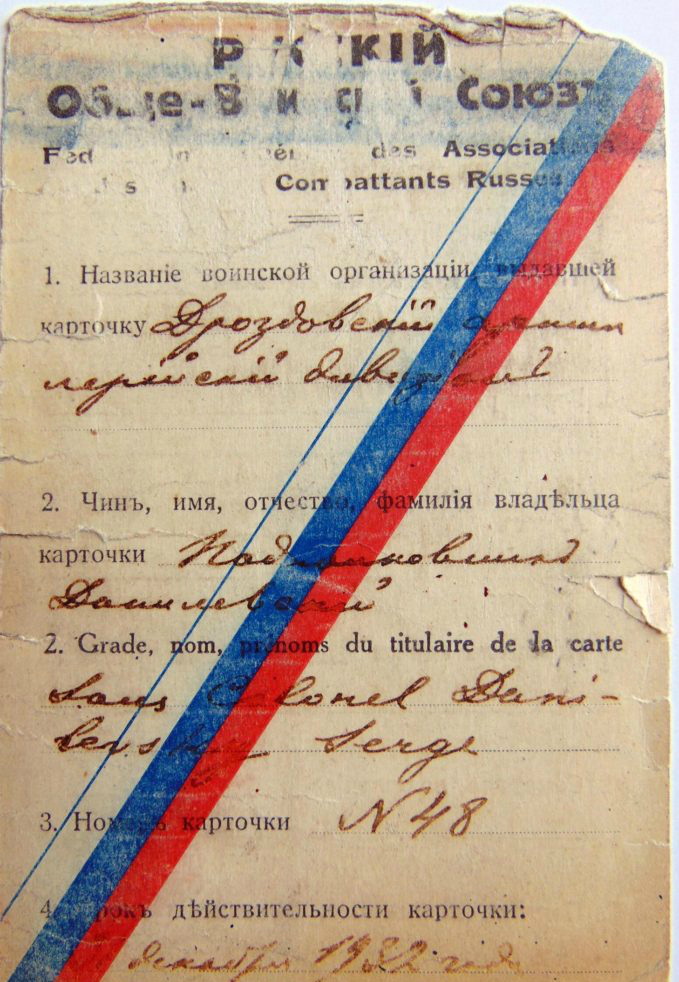 Союзъ
des Associations
Russes
1. Названіе воинской организаціи, выдавшей
карточку Дроздовскій артил
лерійскій дивизіонъ
2. Чинъ, имя, отчество, фамилія владѣльца
карточки Подполковникъ
Данилевскій
2. Grade, nom, prénoms du titulaire de la carte
Sous Colonel Dani-
levsky Serge
3. Номеръ карточки N 48
4. Срокъ дѣйствительности карточки:
декабрь 1932 года